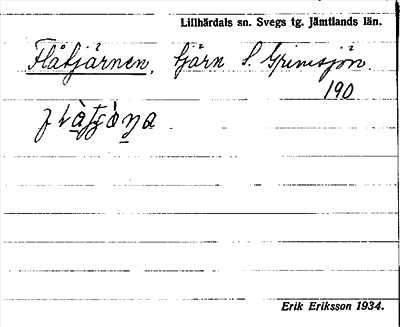 Lillhärdals sn. Svegs tg. Jämtlands län.
Flåtjärnen, tjärn S. Grimsjön.
190
Erik Eriksson 1934.